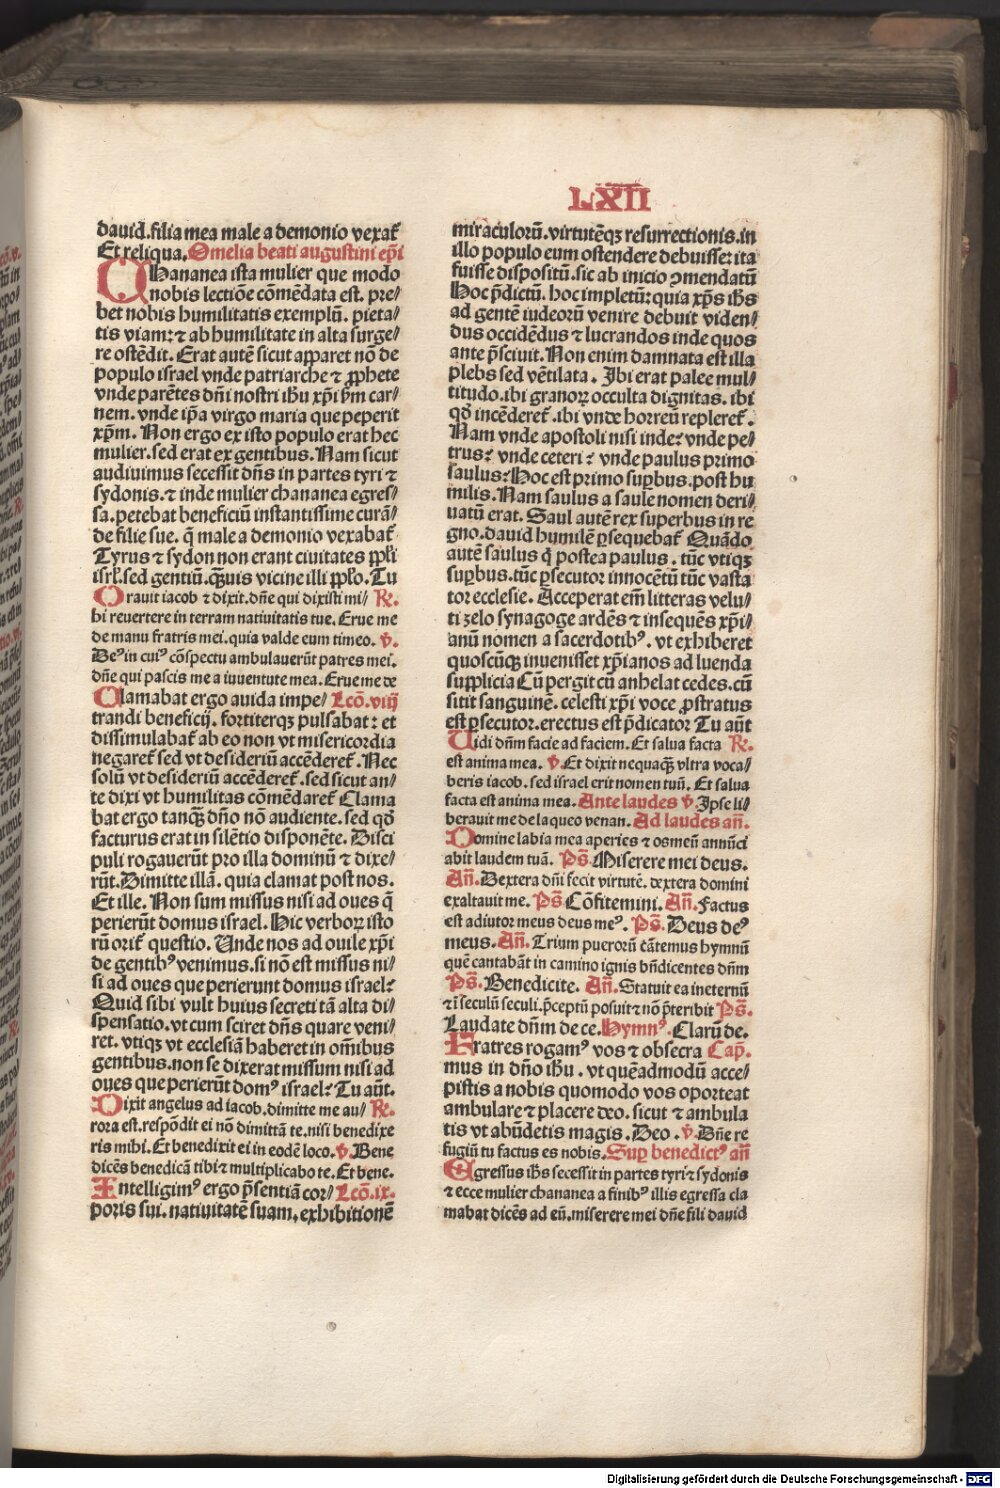 LXII
dauid.filia mea male a demonio vexat᷒
Et reliqua. Omelia beati augustini ep̄i
Chananea ista mulier que modo
nobis lectiōe cōmēdata est. pre⸗
bet nobis humilitatis exemplū. pieta⸗
tis viam: ⁊ ab humilitate in alta surge⸗
re ostēdit. Erat autē sicut apparet nō de
populo israel vnde patriarche ⁊ ꝓphete
vnde parētes dn̄i nostri ihū xp̄i ẜm car⸗
nem. vnde ip̄a virgo maria que peperit
xp̄m. Non ergo ex isto populo erat hec
mulier. sed erat ex gentibus. Nam sicut
audiuimus secessit dn̄s in partes tyri ⁊
sydonis. ⁊ inde mulier chananea egres⸗
sa. petebat beneficiū instantissime curā⸗
de filie sue. q̄ male a demonio vexabat᷒
Tyrus ⁊ sydon non erant ciuitates ppl̄i
isrl̄. sed gentiū. q̄ꝫuis vicine illi ppl̄o. Tu
Orauit iacob ⁊ dixit. dn̄e qui dixisti mi⸗ ℟.
hi reuertere in terram natiuitatis tue. Erue me
de manu fratris mei. quia valde eum timeo. ℣.
Deꝰ in cuiꝰ cōspectu ambulauerūt patres mei.
dn̄e qui pascis me a iuuentute mea. Erue me de
Clamabat ergo auida impe⸗ Lcō. viij
trandi beneficij. fortiterqꝫ pulsabat: et
dissimulabat᷒ ab eo non vt misericordia
negaret᷒ sed vt desideriū accēderet᷒. Nec
solū vt desideriū accēderet᷒. sed sicut an⸗
te dixi vt humilitas cōmēdaret᷒ Clama
bat ergo tanqꝫ dn̄o nō audiente. sed qd̄
facturus erat in silētio disponēte. Disci
puli rogauerūt pro illa dominū ⁊ dixe⸗
rūt. Dimitte illā. quia clamat post nos.
Et ille. Non sum missus nisi ad oues q̄
perierūt domus israel. Hic verboꝝ isto
rū orit᷒ questio. Unde nos ad ouile xp̄i
de gentibꝰ venimus. si nō est missus ni⸗
si ad oues que perierunt domus israel?
Quid sibi vult huius secreti tā alta di⸗
spensatio. vt cum sciret dn̄s quare veni⸗
ret. vtiqꝫ vt ecclesiā haberet in om̄ibus
gentibus. non se dixerat missum nisi ad
oues que perierūt domꝰ israel? Tu aūt.
Dixit angelus ad iacob. dimitte me au⸗ ℟.
rora est. respōdit ei nō dimittā te. nisi benedixe
ris mihi. Et benedixit ei in eodē loco. ℣. Bene
dicēs benedicā tibi ⁊ multiplicabo te. Et bene.
Intelligimꝰ ergo p̄sentiā cor⸗ Lcō. ix.
poris sui. natiuitatē suam. exhibitionē
miraculorū. virtutēqꝫ resurrectionis. in
illo populo eum ostendere debuisse: ita
fuisse dispositū. sic ab inicio ꝯmendatū
Hoc p̄dictū. hoc impletū: quia xp̄s ihs
ad gentē iudeorū venire debuit viden⸗
dus occidēdus ⁊ lucrandos inde quos
ante p̄sciuit. Non enim damnata est illa
plebs sed vētilata. Ibi erat palee mul⸗
titudo. ibi granoꝝ occulta dignitas. ibi
qd̄ incēderet᷒. ibi vnde horreū repleret᷒.
Nam vnde apostoli nisi inde? vnde pe⸗
trus? vnde ceteri? vnde paulus primo
saulus? Hoc est primo suꝑbus. post hu
milis. Nam saulus a saule nomen deri⸗
uatū erat. Saul autē rex superbus in re
gno. dauid humilē ꝑsequebat᷒ Quādo
autē saulus q̄ postea paulus. tūc vtiqꝫ
suꝑbus. tūc ꝑsecutor innocētū tūc vasta
tor ecclesie. Acceperat em̄ litteras velu⸗
ti zelo synagoge ardēs ⁊ insequēs xp̄i⸗
anū nomen a sacerdotibꝰ. vt exhiberet
quoscūqꝫ inuenisset xp̄ianos ad luenda
supplicia Cū pergit cū anhelat cedes. cū
sitit sanguinē. celesti xp̄i voce ꝓstratus
est ꝑsecutor. erectus est p̄dicator Tu aūt
Uidi dn̄m facie ad faciem. Et salua facta ℟.
est anima mea. ℣. Et dixit nequaqꝫ vltra voca⸗
beris iacob. sed israel erit nomen tuū. Et salua
facta est anima mea. Ante laudes ℣. Ipse li⸗
berauit me de laqueo venan. Ad laudes an̄.
Domine labia mea aperies ⁊ os meū annūci
abit laudem tuā. Ps̄. Miserere mei deus.
An̄. Dextera dn̄i fecit virtutē. dextera domini
exaltauit me. Ps̄ Cōfitemini. An̄. Factus
est adiutor meus deus meꝰ. Ps̄. Deus deꝰ
meus. An̄. Trium puerorū cātemus hymnū
quē cantabāt in camino ignis bn̄dicentes dn̄m
Ps̄. Benedicite. An̄. Statuit ea in eternū
⁊ ī seculū seculi. p̄ceptū posuit ⁊ nō p̄teribit Ps̄.
Laudate dn̄m de ce. Hymnꝰ. Clarū de.
Fratres rogamꝰ vos ⁊ obsecra Cap̄.
mus in dn̄o ihū. vt quēadmodū acce⸗
pistis a nobis quomodo vos oporteat
ambulare ⁊ placere deo. sicut ⁊ ambula
tis vt abūdetis magis. Deo. ℣. Dn̄e re
fugiū tu factus es nobis. Suꝑ benedictꝰ an̄
Egressus ihs secessit in partes tyri ⁊ sydonis
⁊ ecce mulier chananea a finibꝰ illis egressa cla
mabat dicēs ad eū. miserere mei dn̄e fili dauid
Digitalisierung gefördert durch die Deutsche Forschungsgemeinschaft - DFG